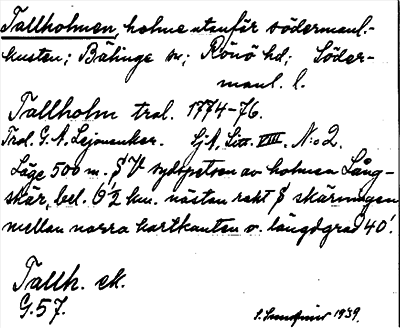 Tallholmen, holme utanför södermanl.-
kusten; Bälinge sn; Rönö hd; Söder-
manl. l.
Tallholm tral. 1774-76.
Trol. G. A. Lejonanker. SjA, Litt. VIII. N:o 2.
Läge 500 m. S V sydspetsen av holmen Lång-
skär, bel. 6 1/2 km. nästan rakt S skärningen
mellan norra kartkanten o. längdgrad 40'.
Tallh. ek.
G. 57.
1939.